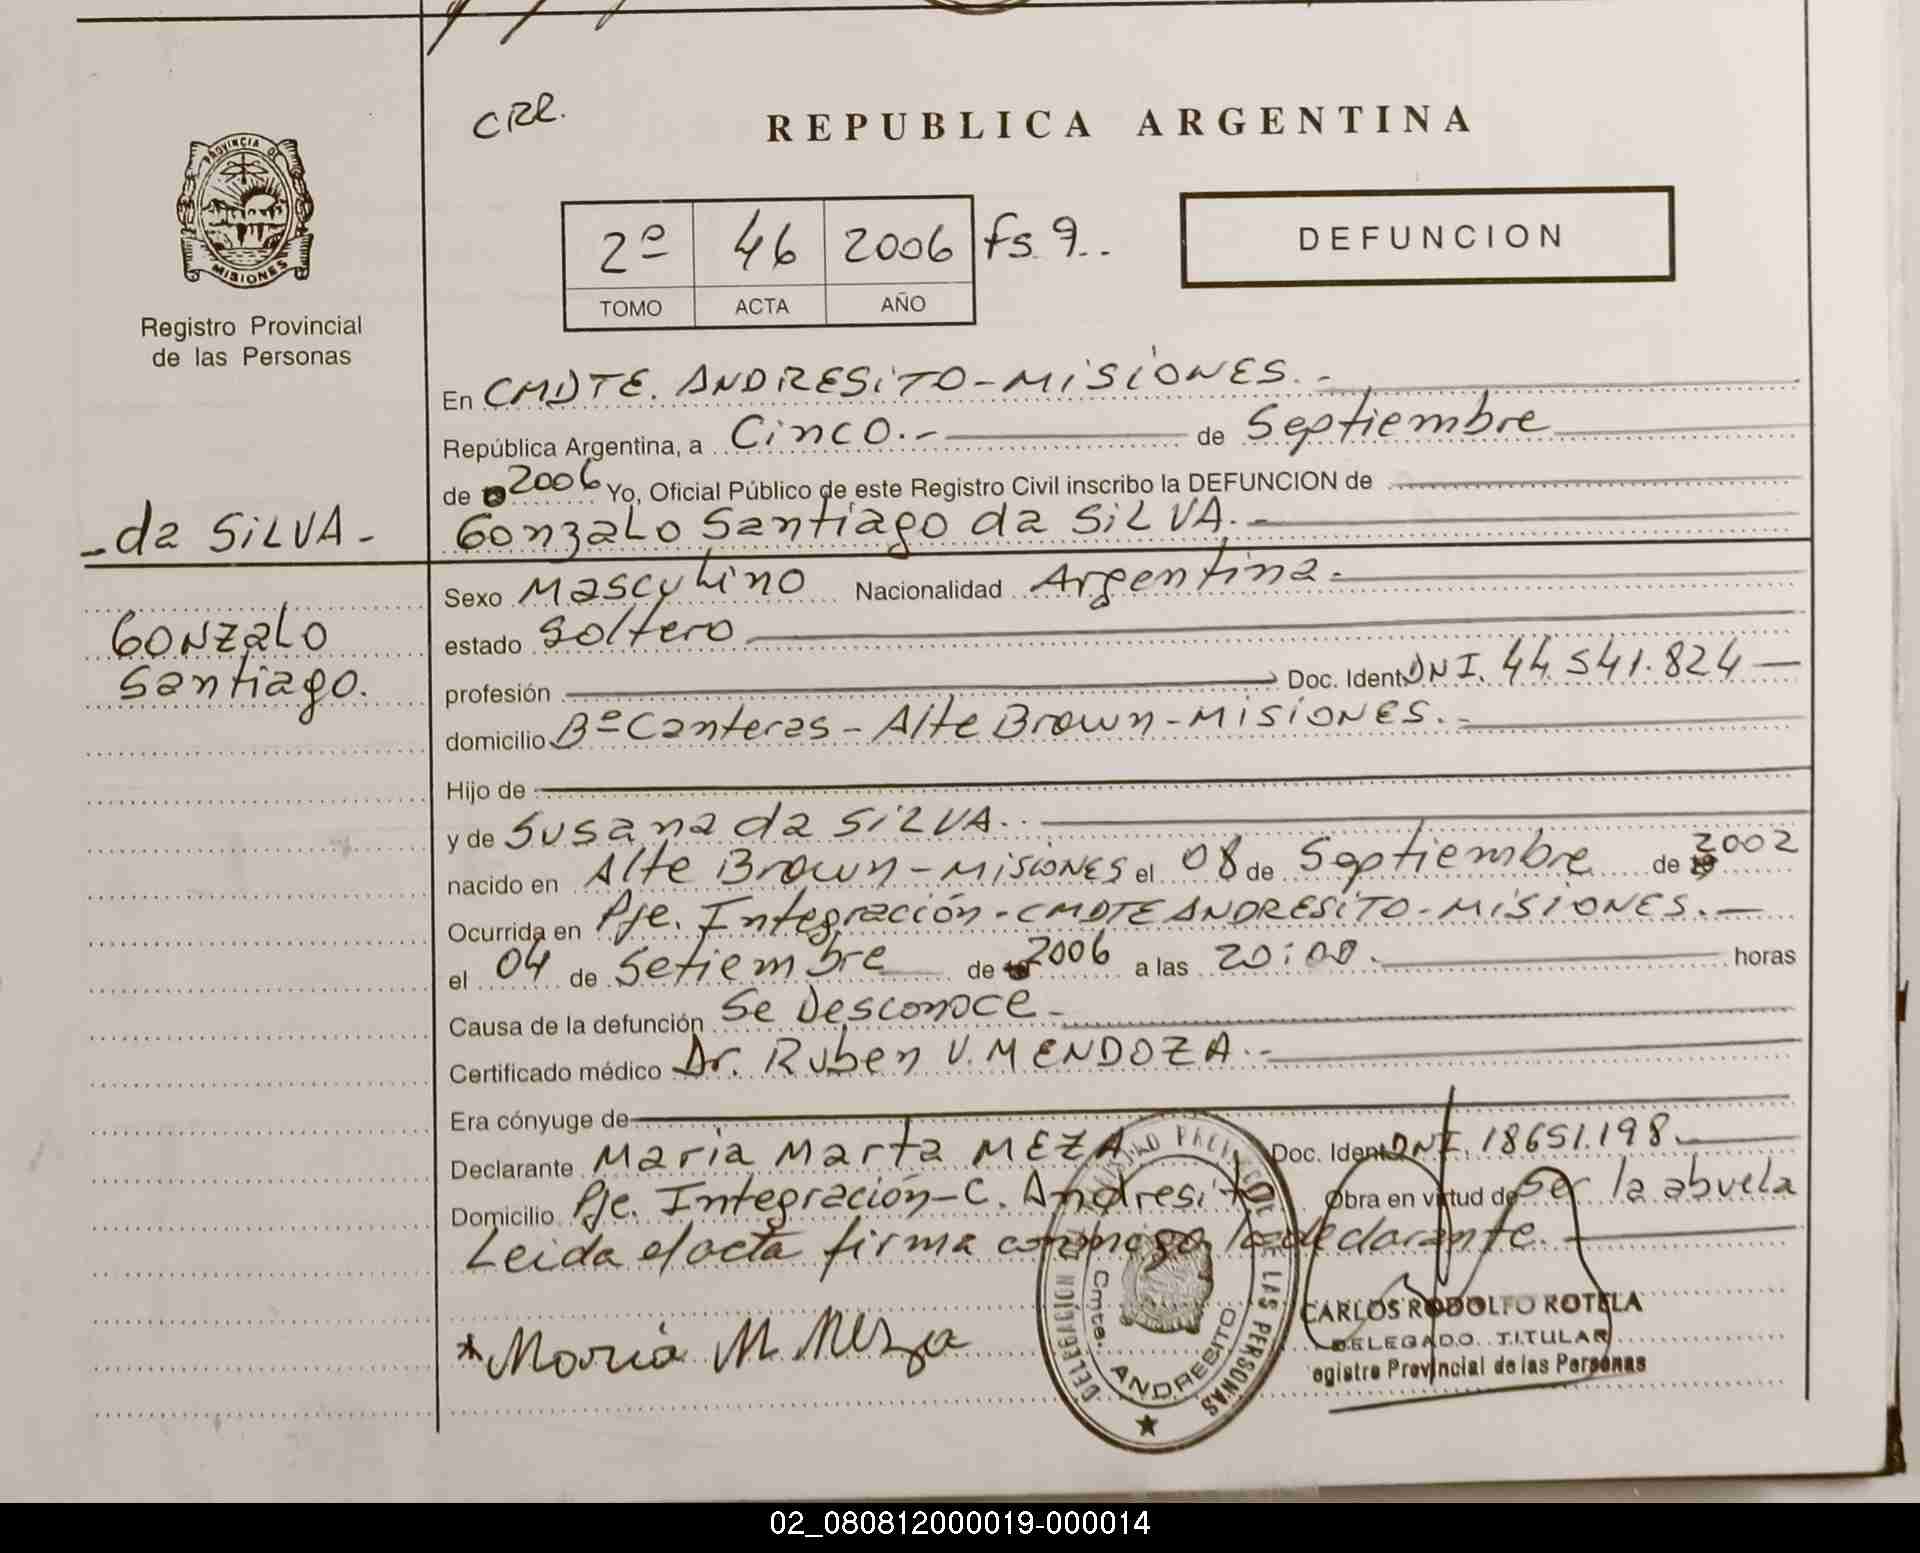 CRR.
REPUBLICA ARGENTINA
PROVINCIA DE
MISIONES
Registro Provincial
de las Personas
2º 46 2006 fs. 9..
TOMO ACTA AÑO
DEFUNCION
En CMDTE. ANDRESITO - MISIONES. -
República Argentina, a Cinco. - de Septiembre
de 2006 Yo, Oficial Público de este Registro Civil inscribo la DEFUNCION de
- da SILVA - Gonzalo Santiago da SILVA. -
Gonzalo
Santiago.
Sexo Masculino Nacionalidad Argentina -
estado Soltero
profesión Doc. Ident. DNI. 44.541.824
domicilio Bº Canteras - Alte Brown - MISIONES. -
Hijo de
y de Susana da SILVA. -
nacido en Alte Brown - MISIONES el 08 de Septiembre de 2002
Ocurrida en Pje. Integración - CMDTE ANDRESITO - MISIONES. -
el 04 de Setiembre de 2006 a las 20:00. horas
Causa de la defunción Se Desconoce -
Certificado médico Dr. Ruben V. MENDOZA. -
Era cónyuge de
Declarante Maria Marta MEZA Doc. Ident. DNI. 18651.198
Domicilio Pje. Integración - C. Andresito Obra en virtud de Ser la abuela
Leida el acta firma conmigo la declarante.
* Maria M Meza
DELEGACION REGISTRO PROVINCIAL DE LAS PERSONAS
Cmte. ANDRESITO
CARLOS RODOLFO ROTELA
DELEGADO TITULAR
egistro Provincial de las Personas
02_080812000019-000014